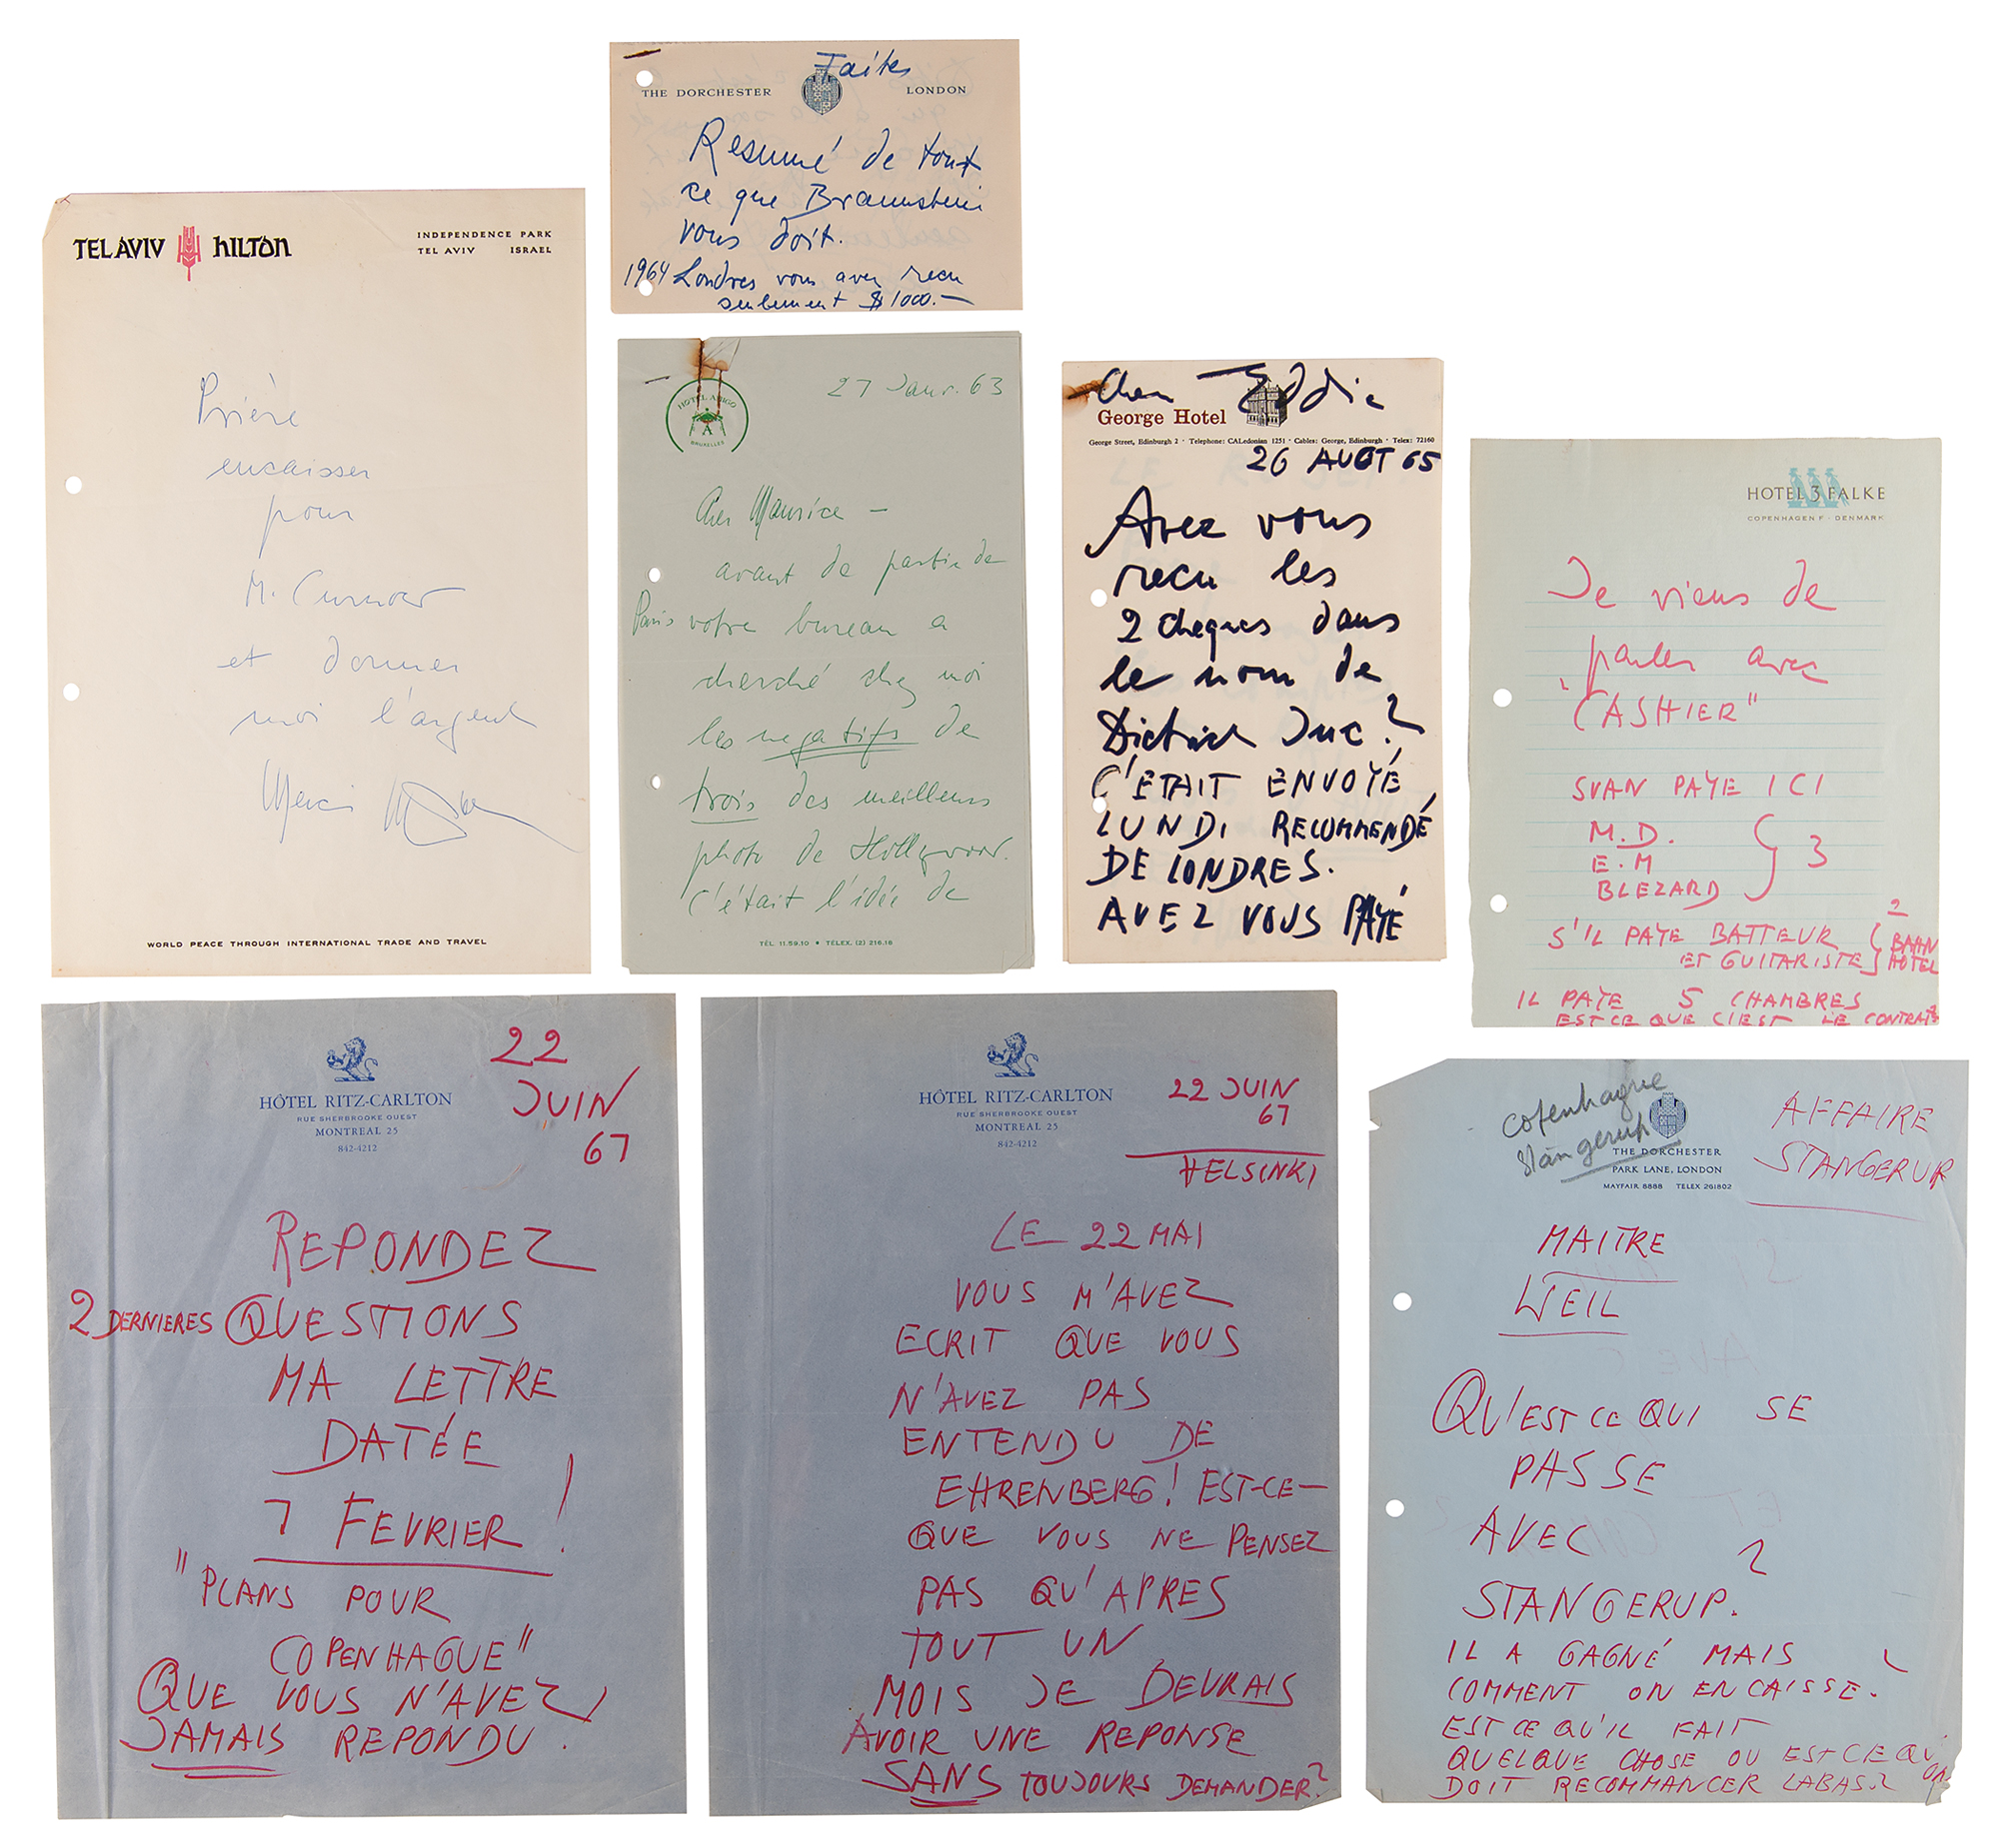 Faites
THE DORCHESTER LONDON
Resumé de tout
ce que Braunstein
vous doit.
1964 Londres vous avez recu
seulement $1000.—
TEL AVIV HILTON
INDEPENDENCE PARK
TEL AVIV ISRAEL
Prière
encaisser
pour
M.
et donner
moi l'argent
Merci
WORLD PEACE THROUGH INTERNATIONAL TRADE AND TRAVEL
27 Janv. 63
HOTEL AMIGO
BRUXELLES
Cher Maurice —
avant de partir de
Paris votre bureau a
cherché chez moi
les negatifs de
trois des meilleurs
photo de Hollywood.
C'était l'idée de
TÉL 11.59.10 • TÉLEX. (2) 216.18
Cher Eddie
George Hotel
George Street, Edinburgh 2 · Telephone: CALedonian 1251 · Cables: George, Edinburgh · Telex: 72160
26 AUOT 65
Avez vous
recu les
2 cheques dans
le nom de
Dietrich Inc?
C'ETAIT ENVOYÉ
LUNDI RECOMMENDÉ
DE LONDRES.
AVEZ VOUS PAYÉ
HOTEL 3 FALKE
COPENHAGEN F · DENMARK
Je viens de
parler avec
"CASHIER"
SVAN PAYE ICI
M.D.
E.M
BLEZARD
} 3
S'IL PAYE BATTEUR
ET GUITARISTE
} 2
BAHN
HOTEL
IL PAYE 5 CHAMBRES
EST CE QUE C'EST LE CONTRAT?
22
JUIN
67
HÔTEL RITZ-CARLTON
RUE SHERBROOKE OUEST
MONTREAL 25
842-4212
REPONDEZ
2 DERNIERES QUESTIONS
MA LETTRE
DATÉE
7 FEVRIER!
"PLANS POUR
COPENHAGUE"
QUE VOUS N'AVEZ
JAMAIS REPONDU.
HÔTEL RITZ-CARLTON
RUE SHERBROOKE OUEST
MONTREAL 25
842-4212
22 JUIN
67
HELSINKI
LE 22 MAI
VOUS M'AVEZ
ECRIT QUE VOUS
N'AVEZ PAS
ENTENDU DE
EHRENBERG! EST-CE—
QUE VOUS NE PENSEZ
PAS QU'APRES
TOUT UN
MOIS JE DEVRAIS
AVOIR UNE REPONSE
SANS TOUJOURS DEMANDER?
Copenhague
Stangerup
THE DORCHESTER
PARK LANE, LONDON
MAYFAIR 8888 TELEX 261802
AFFAIRE
STANGERUP
MAITRE
WEIL
QU'EST CE QUI SE
PASSE
AVEC ?
STANGERUP.
IL A GAGNÉ MAIS
COMMENT ON ENCAISSE.
EST CE QU'IL FAIT
QUELQUE CHOSE OU EST CE QU'ON
DOIT RECOMMANCER LABAS?